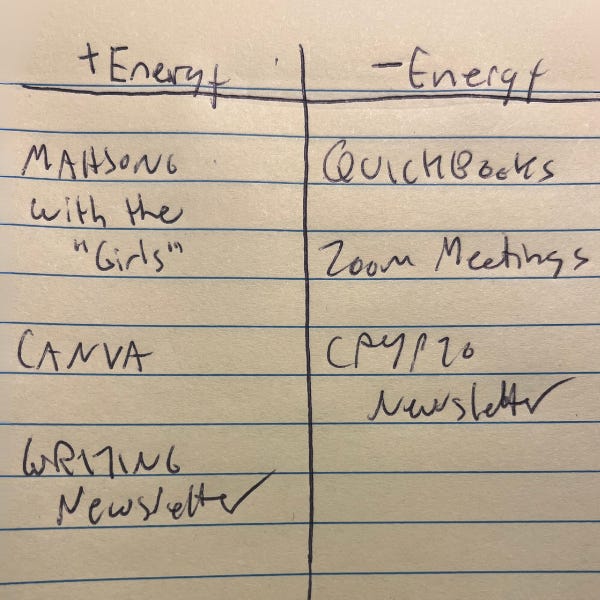 +Energy
-Energy
MAHSONG
with the
"Girls"
CANVA
WRITING
Newsletter
QUICKBooks
Zoom Meetings
CRYPTO
Newsletter